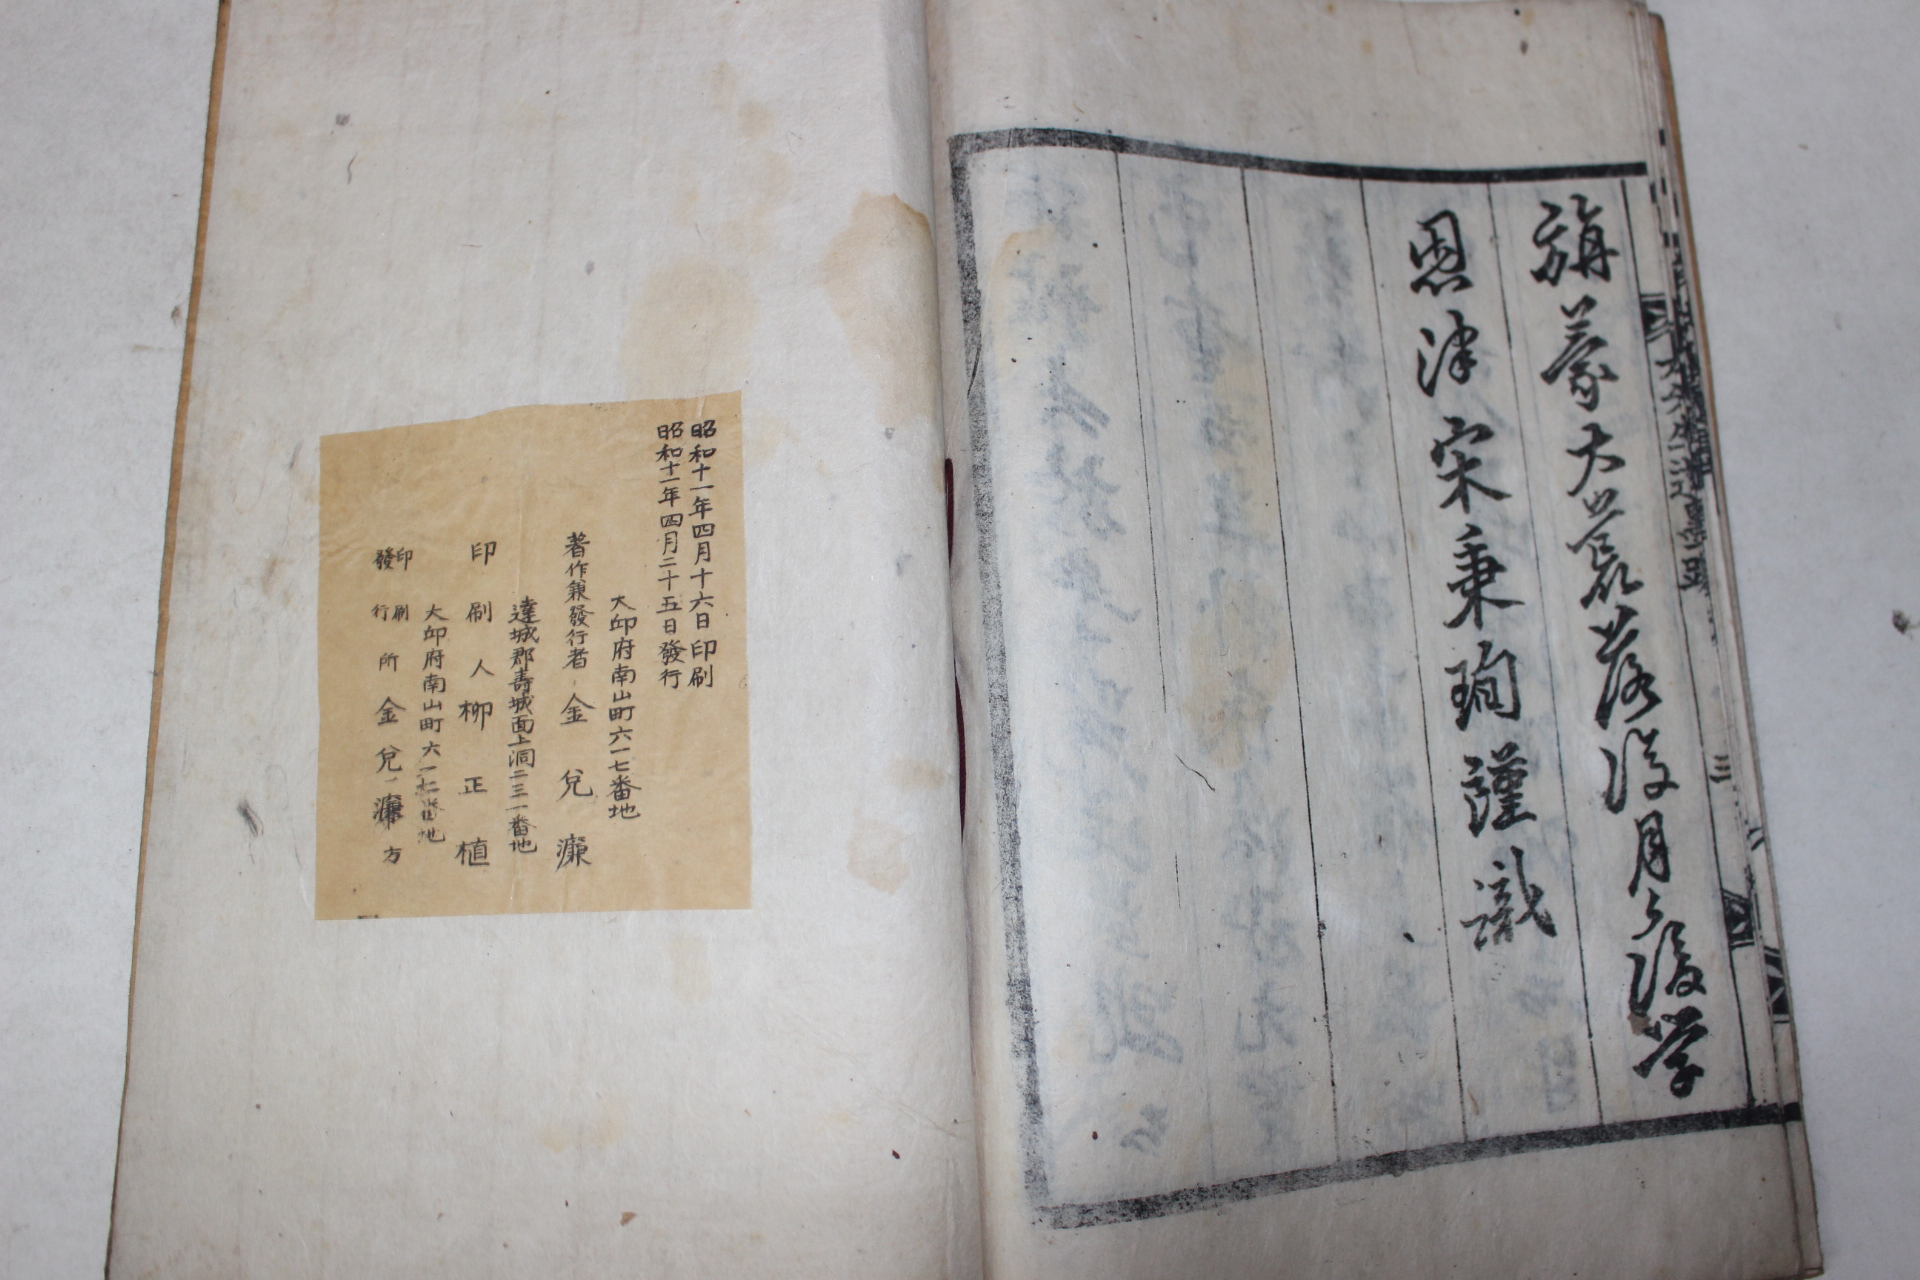 旃蒙大荒落復月之後学
恩津宋秉珣謹識
三
昭和十一年四月十六日印刷
昭和十一年四月二十五日發行
大邱府南山町六一七番地
著作兼發行者 金兌濂
達城郡壽城面上洞二三一番地
印刷人 柳正植
大邱府南山町六一七番地
印刷
發行所 金兌濂方